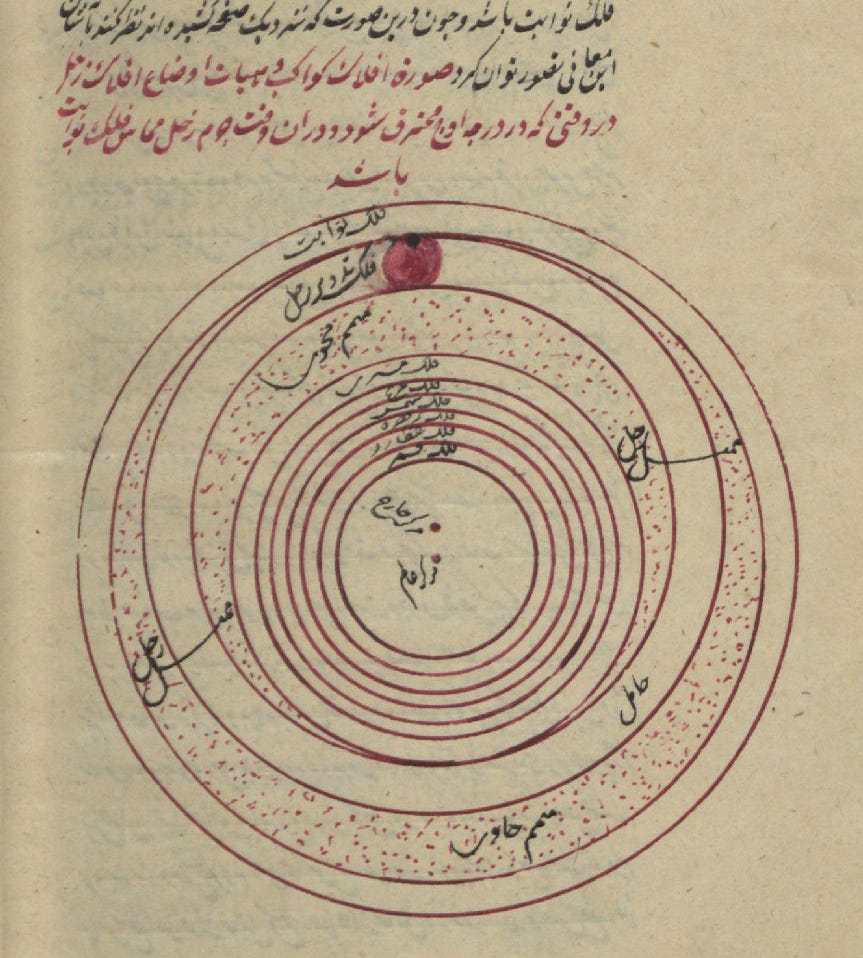 فلک ثوابت باشد و چون درین صورت که در یک صفحه کشیده اند نظر کنند
این معانی تصور توان کرد صورة افلاک کواکب و هیات اوضاع افلاک زحل
در وقتی که در درجه اوج محترق شود و در آن وقت جرم زحل مماس فلک ثوابت
باشد
فلک ثوابت
فلک تدویر زحل
متمم محوی
فلک مشتری
فلک مریخ
فلک شمس
فلک زهره
فلک عطارد
فلک قمر
ممثل زحل
مرکز خارج
مرکز عالم
ممثل زحل
حامل
متمم حاوی